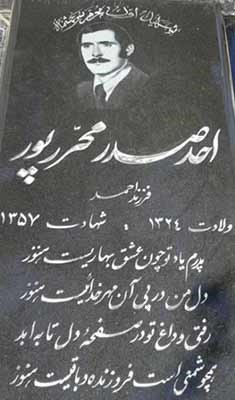 احد صدر محرّرپور
فرزند احمد
ولادت ۱۳۲۴ ، شهادت ۱۳۵۷
پدرم یاد تو چون عشق بهاریست هنوز
دل من در پی آن مهر خدائیست هنوز
رفتی و داغ تو در صفحه دل تا به ابد
همچو شمعی است فروزنده و باقیست هنوز